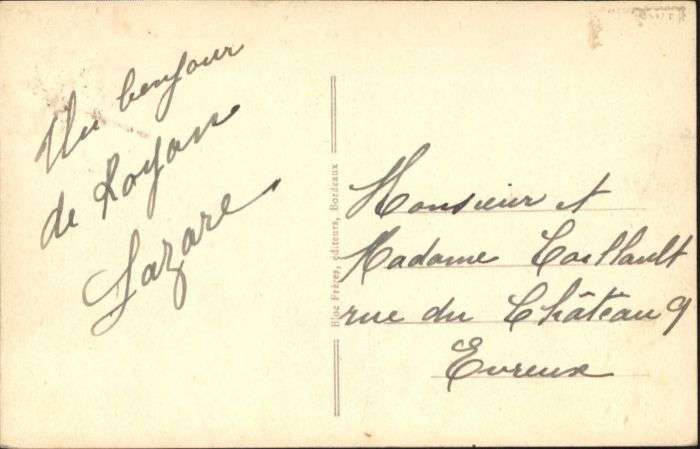 Un bonjour
de Royan
Lazare
Bloc Frères, éditeurs, Bordeaux
Monsieur et
Madame Caillault
rue du Château 9
Evreux